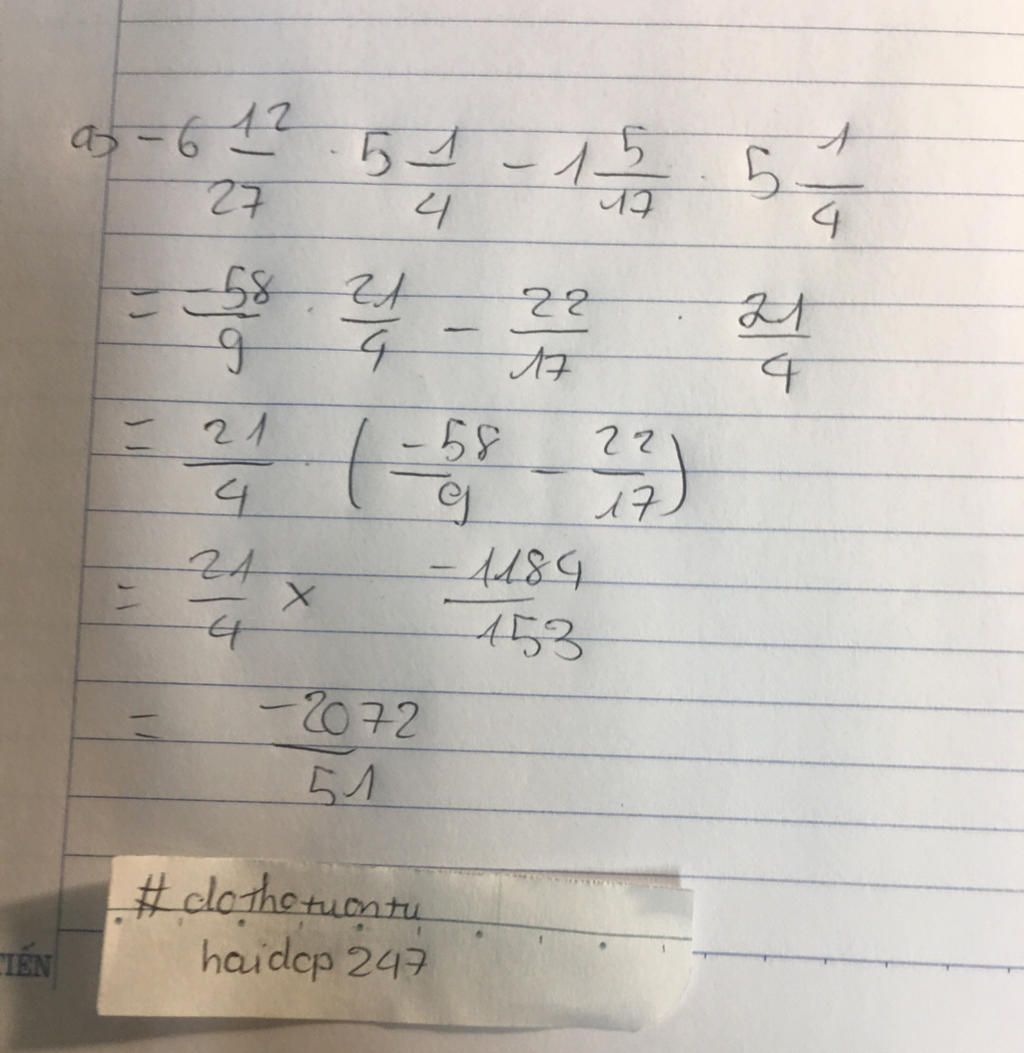 a) -6 12/27 . 5 1/4 - 1 5/17 . 5 1/4
= -58/9 . 21/4 - 22/17 . 21/4
= 21/4 . ( -58/9 - 22/17 )
= 21/4 × -1184/153
= -2072/51
#clothotuontu
haidcp247
TIẾN